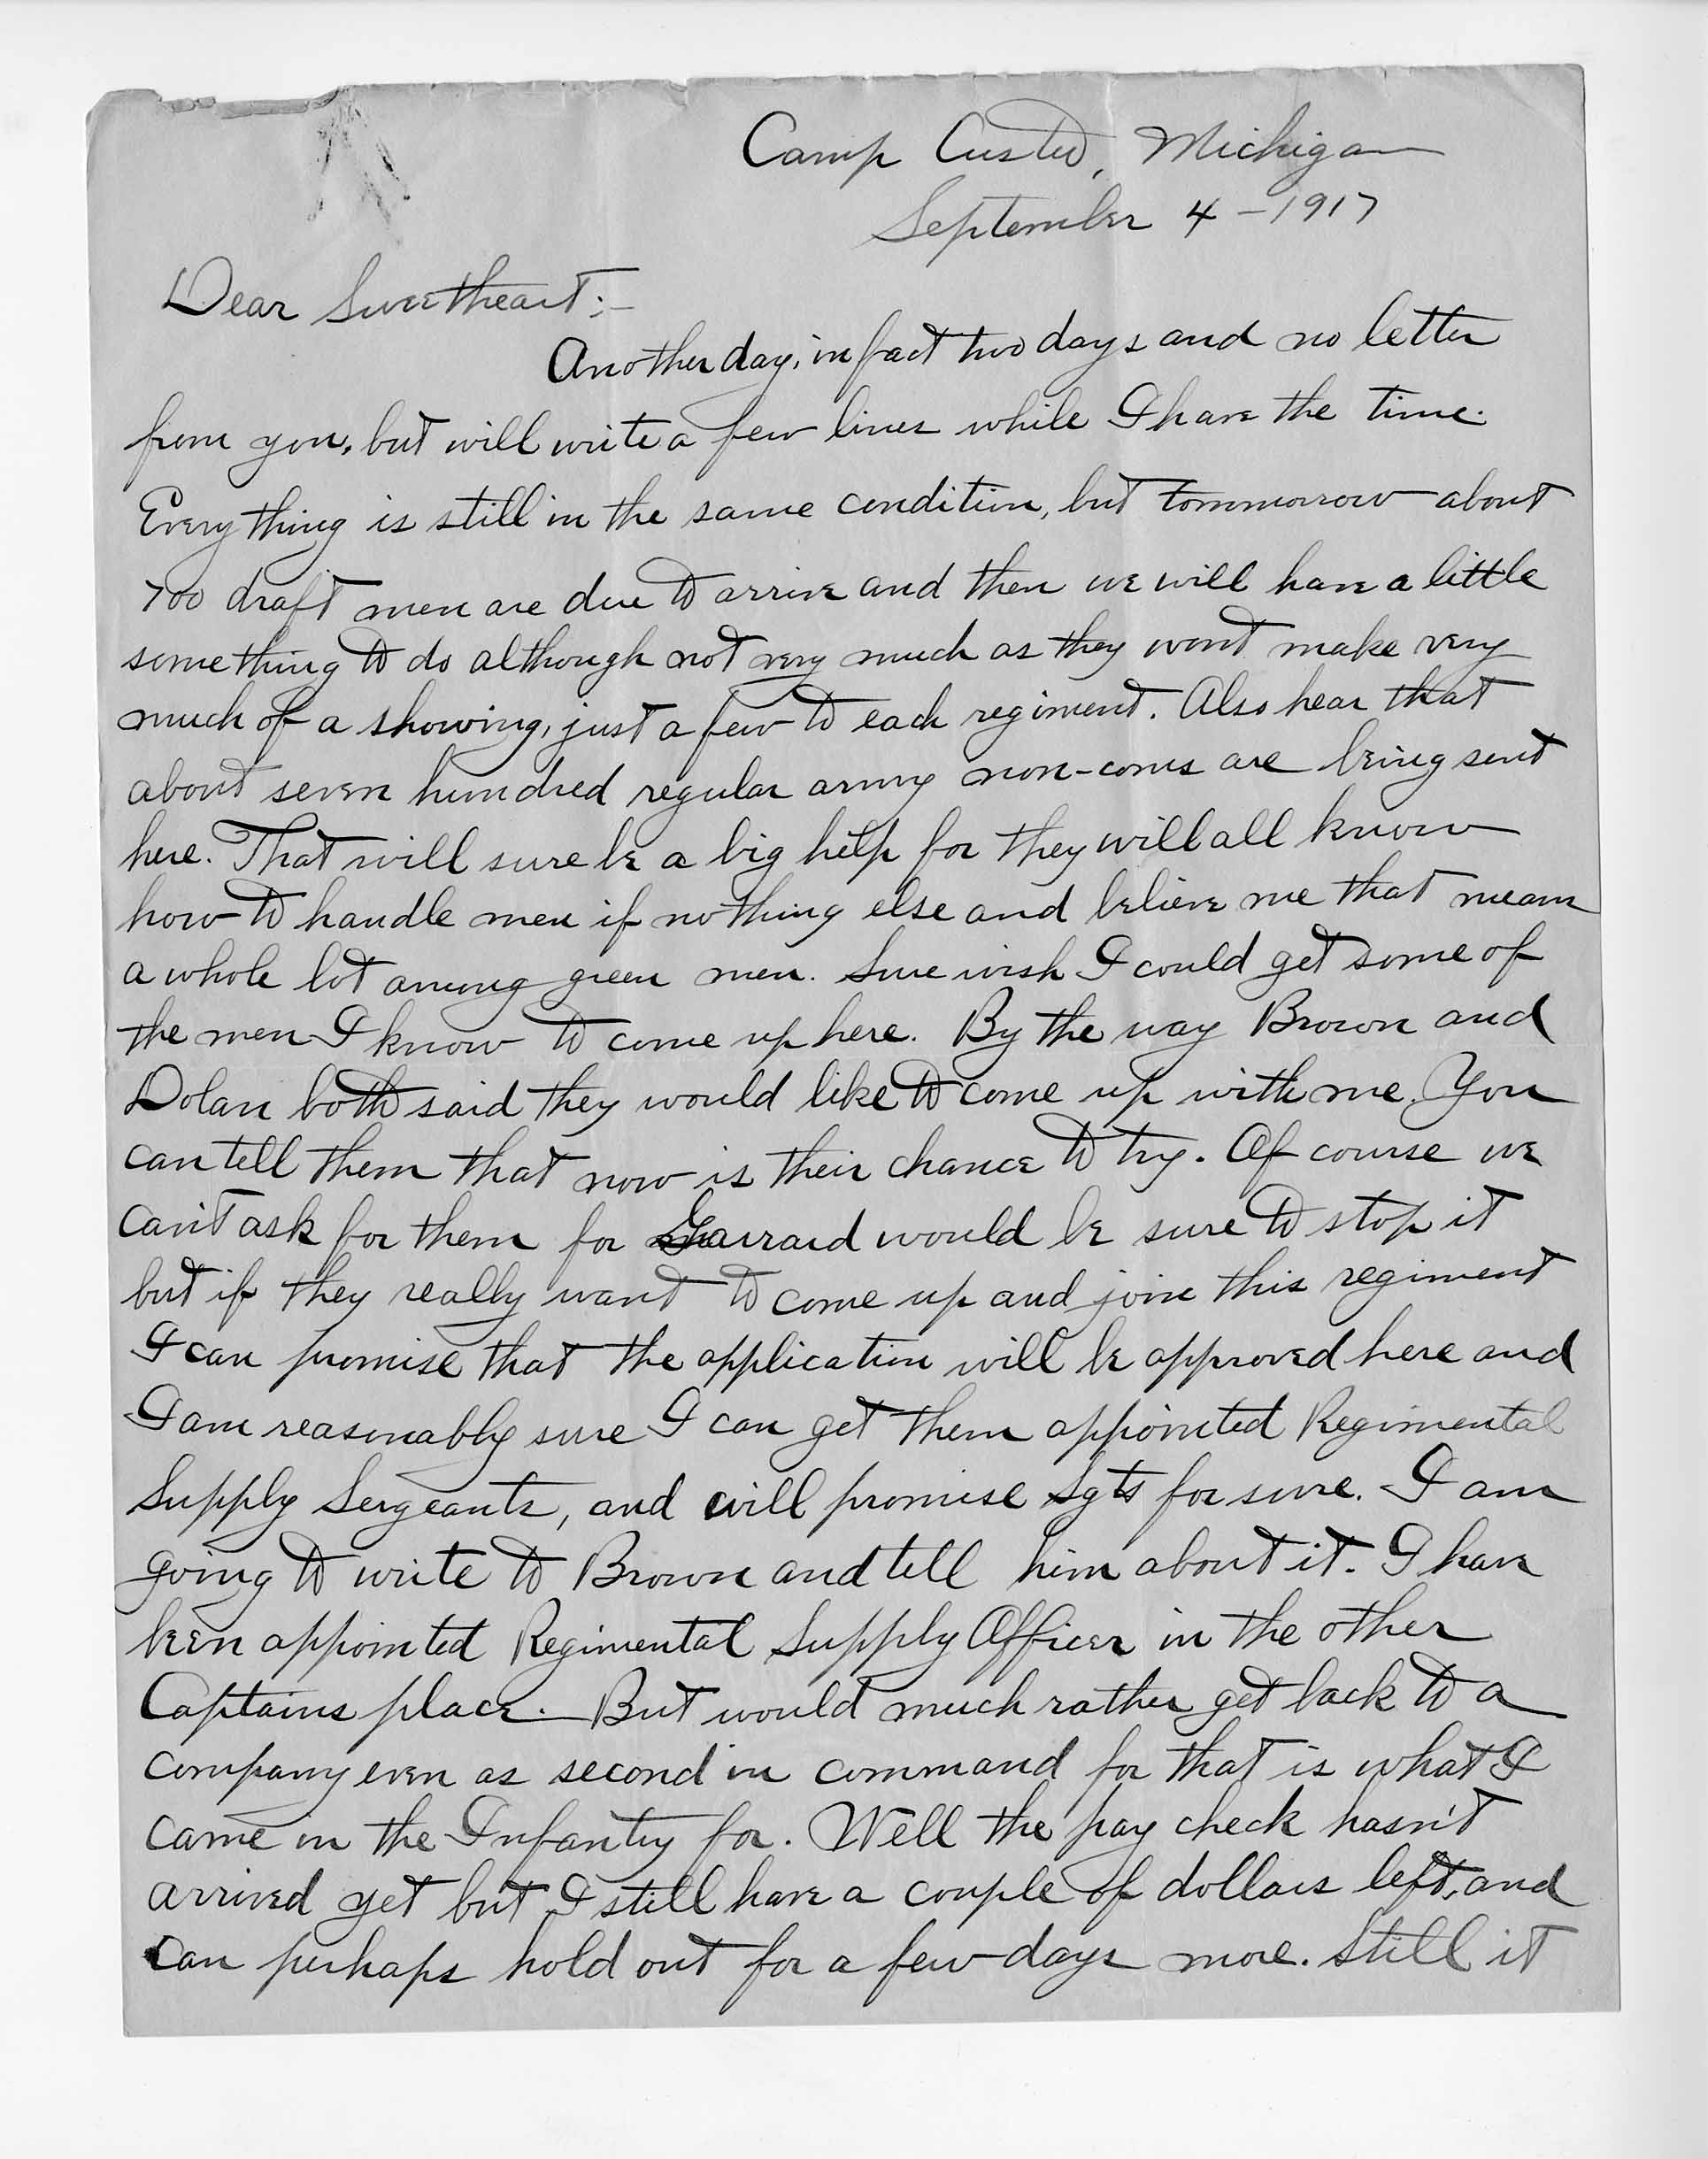 Camp Custer, Michigan
September 4 - 1917
Dear Sweetheart:-
Another day, in fact two days and no letter
from you, but will write a few lines while I have the time.
Everything is still in the same condition, but tommorrow about
700 draft men are due to arrive and then we will have a little
something to do although not very much as they wont make very
much of a showing, just a few to each regiment. Also hear that
about seven hundred regular army non-coms are being sent
here. That will sure be a big help for they will all know
how to handle men if nothing else and believe me that means
a whole lot among green men. Sure wish I could get some of
the men I know to come up here. By the way Brown and
Dolan both said they would like to come up with me. You
can tell them that now is their chance to try. Of course we
can't ask for them for Garrard would be sure to stop it
but if they really want to come up and join this regiment
I can promise that the application will be approved here and
I am reasonably sure I can get them appointed Regimental
Supply Sergeants, and will promise Sgts for sure. I am
going to write to Brown and tell him about it. I have
been appointed Regimental Supply Officer in the other
Captains place. But would much rather get back to a
company even as second in command for that is what I
came in the Infantry for. Well the pay check hasn't
arrived yet but I still have a couple of dollars left, and
can perhaps hold out for a few days more. Still it